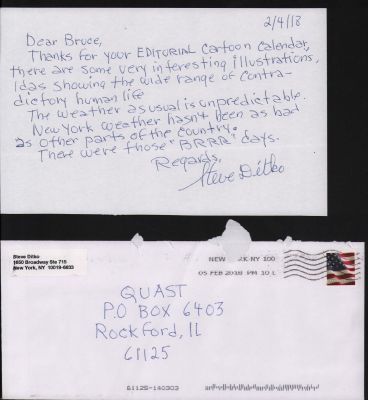 2/4/18
Dear Bruce,
Thanks for your EDITORIAL Cartoon Calendar,
there are some very interesting illustrations,
Idas showing the wide range of contra-
dictory human life
The weather as usual is unpredictable.
New York weather hasnt been as bad
as other parts of the country.
There were those "BRRR" days.
Regards,
Steve Ditko
Steve Ditko
1650 Broadway Ste 715
New York, NY 10019-6833
NEW YORK NY 100
05 FEB 2018 PM 10 L
QUAST
P.O BOX 6403
Rockford, Il
61125
61125-140303